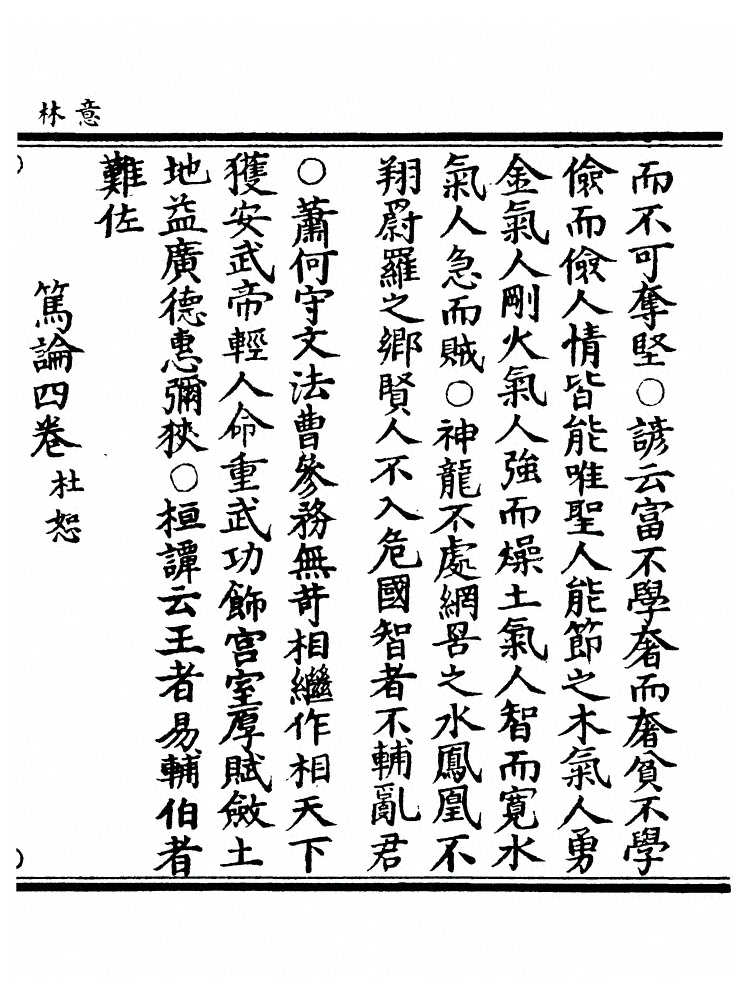 意林
而不可奪堅○諺云富不學奢而奢貧不學
儉而儉人情皆能唯聖人能節之木氣人勇
金氣人剛火氣人強而燥土氣人智而寛水
氣人急而賊○神龍不處網罟之水鳳凰不
翔罻羅之鄉賢人不入危國智者不輔亂君
○蕭何守文法曹參務無苛相繼作相天下
獲安武帝輕人命重武功飾宫室厚賦斂土
地益廣德惠彌狹○桓譚云王者易輔伯者
難佐
篤論四卷杜恕